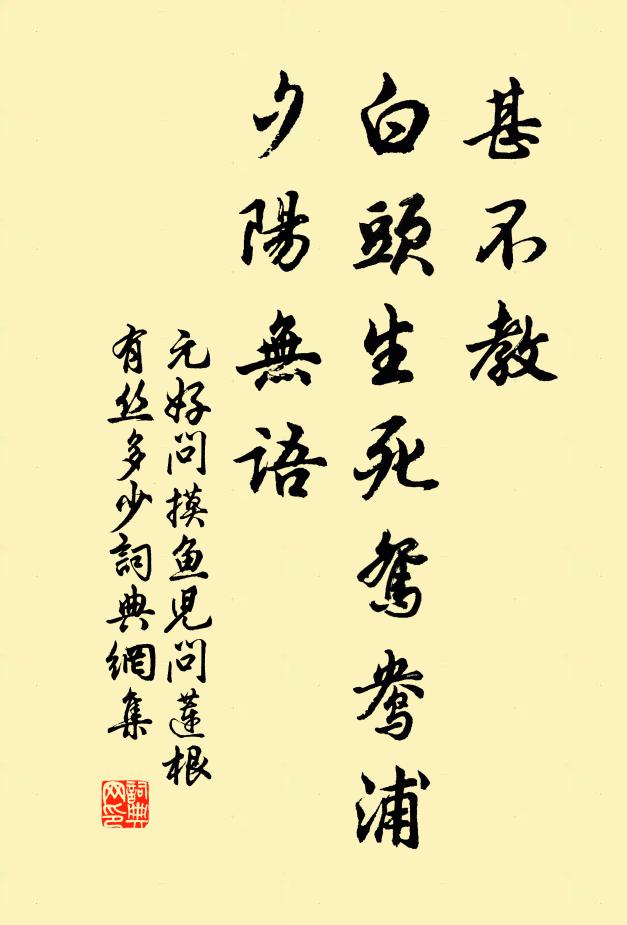 甚不教
白頭生死鴛鴦浦
夕陽無語
元好问摸鱼児问蓮根
有丝多少詞典網集
詞典网印